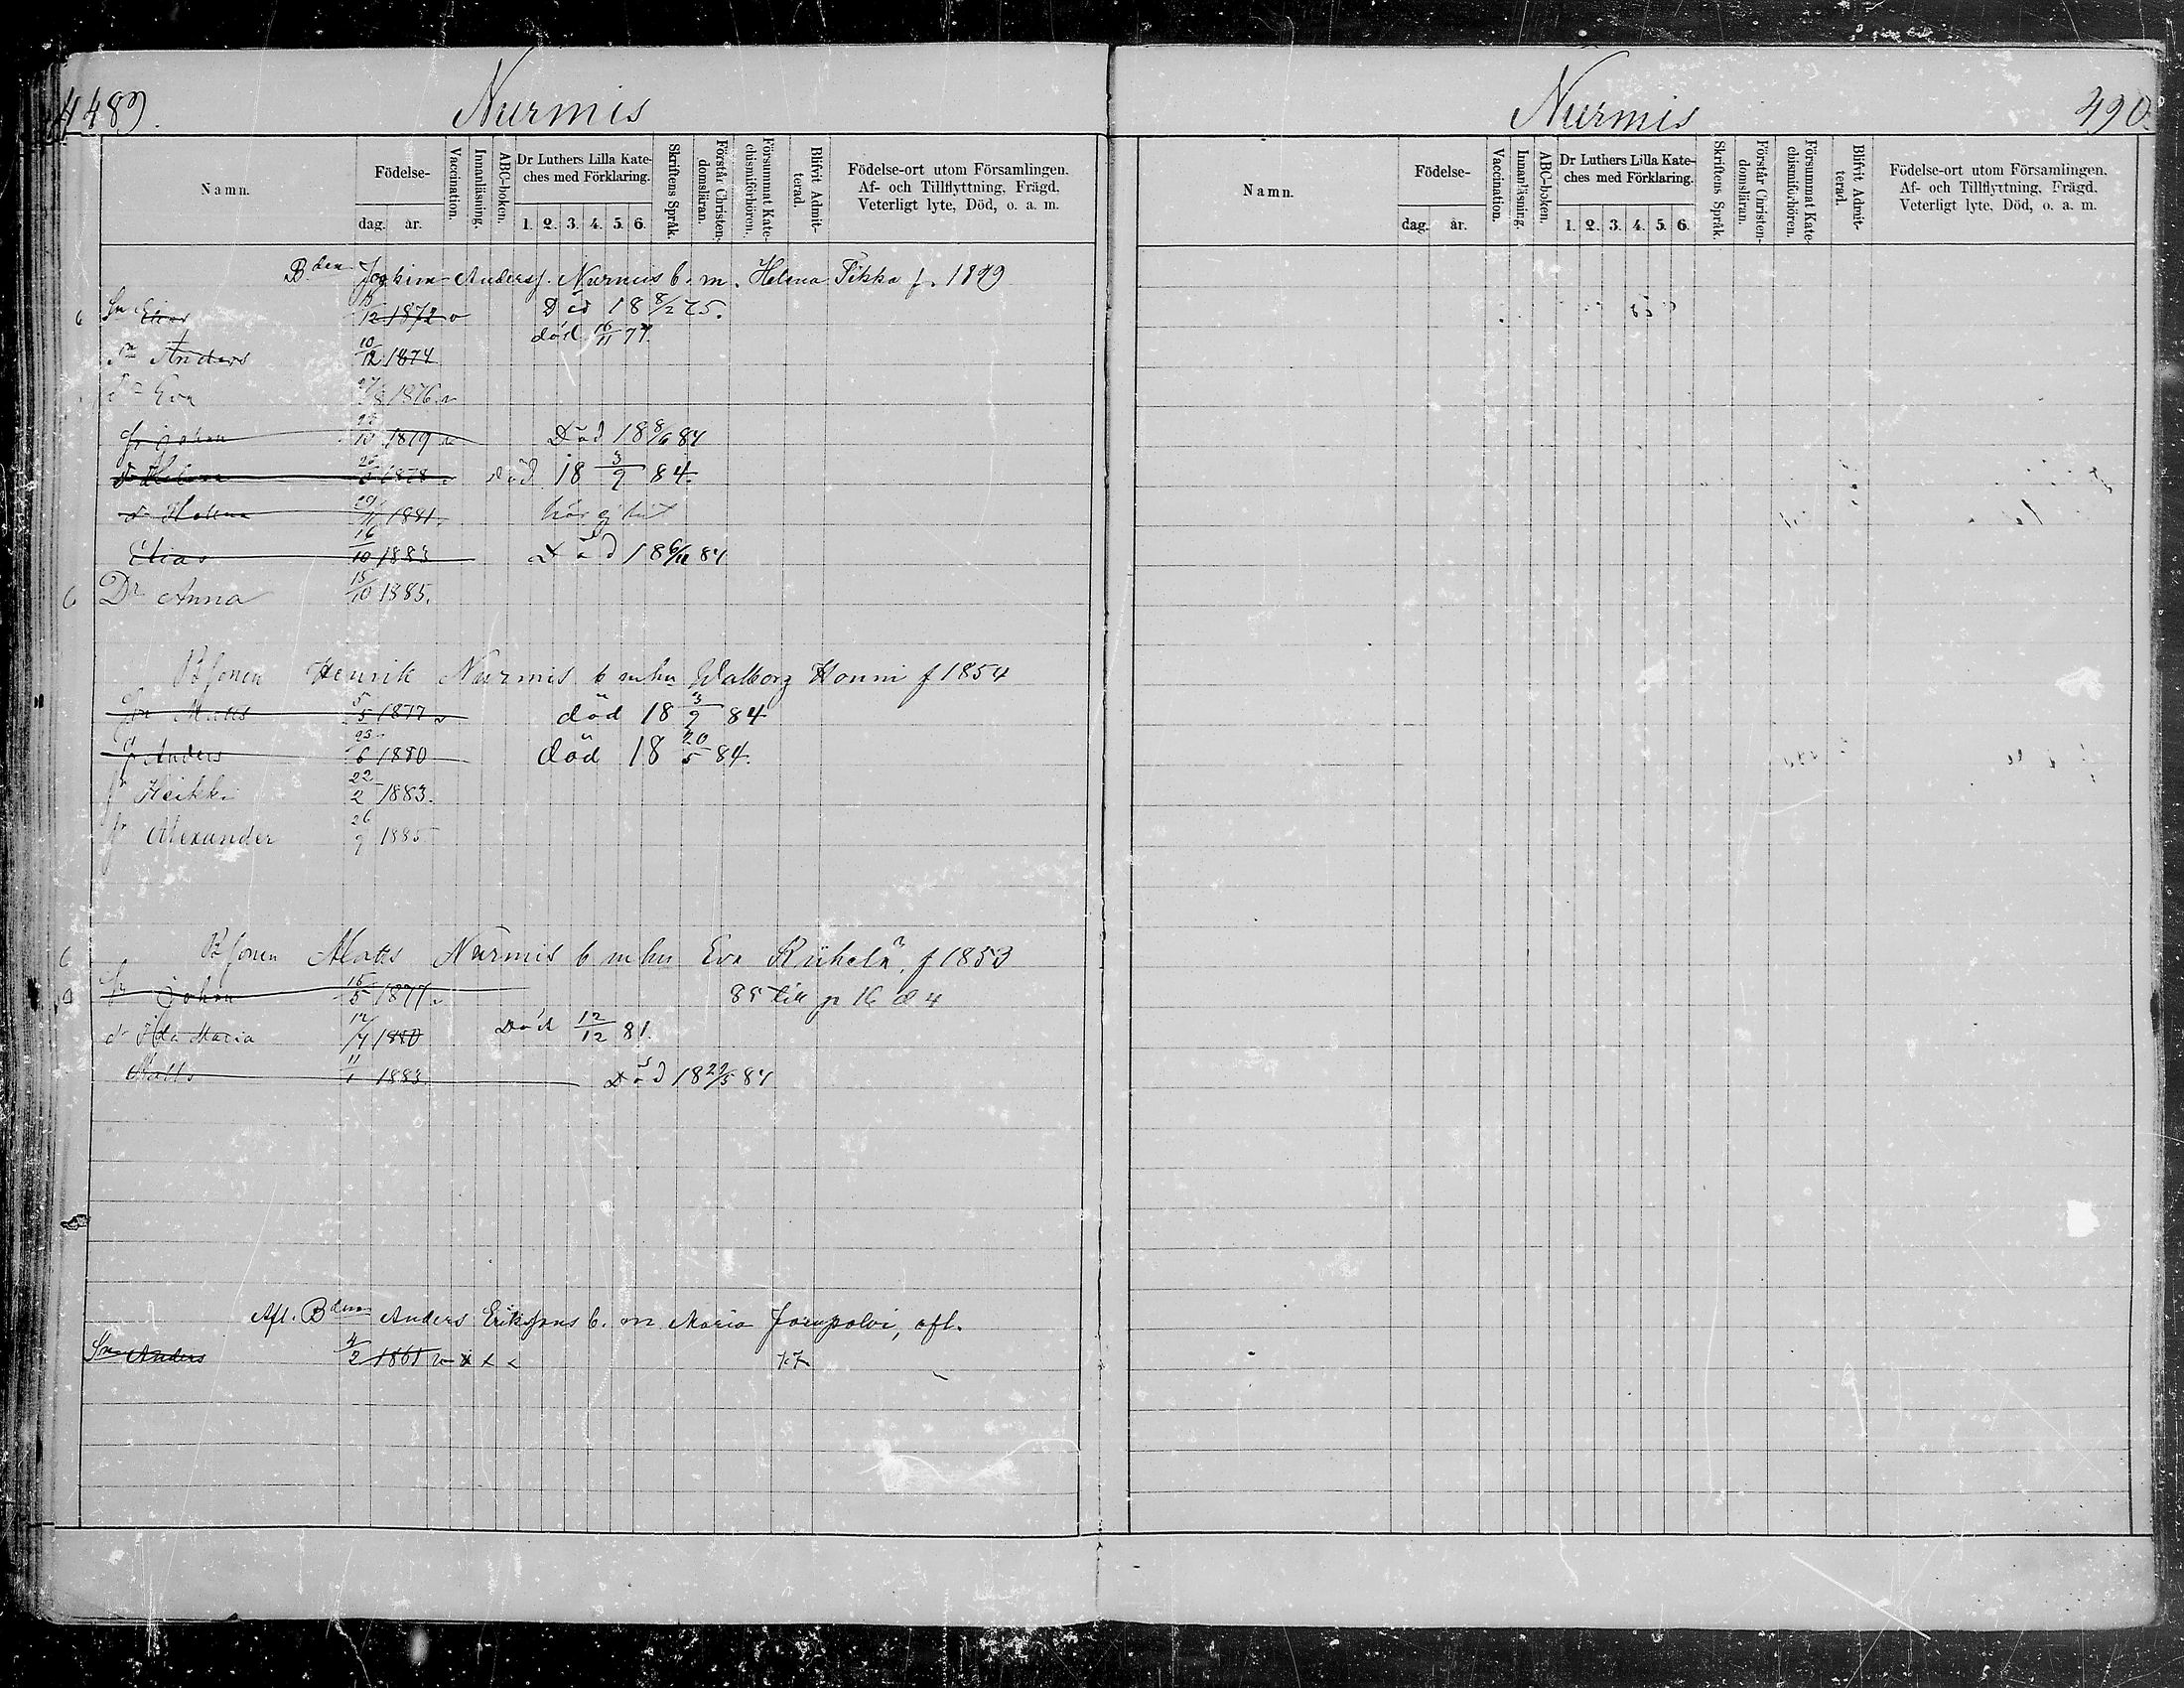 489.
Nurmis
Namn. Födelse- dag. år. Vaccination. Innanläsning. ABC-boken. Dr Luthers Lilla Kateches med Förklaring. 1. 2. 3. 4. 5. 6. Skriftens Språk. Förstår Christendomsläran. Försummat Katechismiförhören. Blifvit Admitterad. Födelse-ort utom Församlingen. Af- och Tillflyttning, Frägd. Veterligt lyte, Död, o. a. m.
Bden Joakim Andersf. Nurmis b. m. Helena Tikka f. 1849
Sn Elias 12 1872 v Död 18 8/2 75.
Sn Anders 10/12 1874 död 16/11 77.
Eva 27/8 1876 v
Sn Johan 1879 v Död 18 8/6 84
dr Helena 1878 v död 18 3/9 84.
dr Helena 29/11 1881. hör ej hit
Elias 16/10 1883 Död 18 6/11 84
Dr Anna 15/10 1885.
Bsonen Henrik Nurmis b m hu Walborg Honni f 1854
Sn Matts 5/5 1877 v död 18 3/9 84
Sn Anders 23/6 1880 död 18 20/5 84.
Sn Heikki 22/2 1883.
Sn Alexander 26/9 1885
Bsonen Matts Nurmis b m hu Eva f 1853
Sn Johan 15/5 1877 v 85 till p 16 d 4
dr Ida Maria 12/4 1880 Död 12/12 81.
Matts 11/1 1883. Död 18 29/5 84
Afl. Bden Anders Erikssons b. m Maria afl.
Sn Anders 4/2 1861 v x x x 77
Nurmis
490.
Namn. Födelse- dag. år. Vaccination. Innanläsning. ABC-boken. Dr Luthers Lilla Kateches med Förklaring. 1. 2. 3. 4. 5. 6. Skriftens Språk. Förstår Christendomsläran. Försummat Katechismiförhören. Blifvit Admitterad. Födelse-ort utom Församlingen. Af- och Tillflyttning, Frägd. Veterligt lyte, Död, o. a. m.